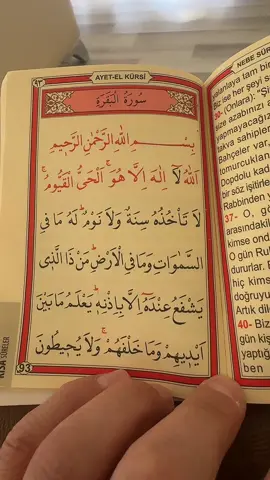 ٩٣
AYET-EL KÜRSİ
سُورَةُ الْبَقَرَةِ
بِسْمِ اللهِ الرَّحْمٰنِ الرَّحِيمِ
اَللهُ لَٓا اِلٰهَ اِلَّا هُوَۚ اَلْحَيُّ الْقَيُّومُۚ
لَا تَأْخُذُهُ سِنَةٌ وَلَا نَوْمٌۜ لَهُ مَا فِي
السَّمٰوَاتِ وَمَا فِي الْاَرْضِۜ مَنْ ذَا الَّذ۪ي
يَشْفَعُ عِنْدَهُٓ اِلَّا بِاِذْنِه۪ۜ يَعْلَمُ مَا بَيْنَ
اَيْد۪يهِمْ وَمَا خَلْفَهُمْۚ وَلَا يُح۪يطُونَ
93
KISA SÛRELER
NEBE SÛR
yalanlaya
tam bir
Biz ise her şeyi
30- (Onlara): "Şi
size azabınızı
yapmayacağız
takva sahipler
Bahçeler var,
tomurcukları
Dopdolu kad
bir söz işitirle
Rabbinden y
37- O, gö
arasındakile
kimse ond
O gün Ruh
dururlar.
hiç kimse
doğruyu
Artık dile
40- Biz
gün kişi
yaptığı
ben